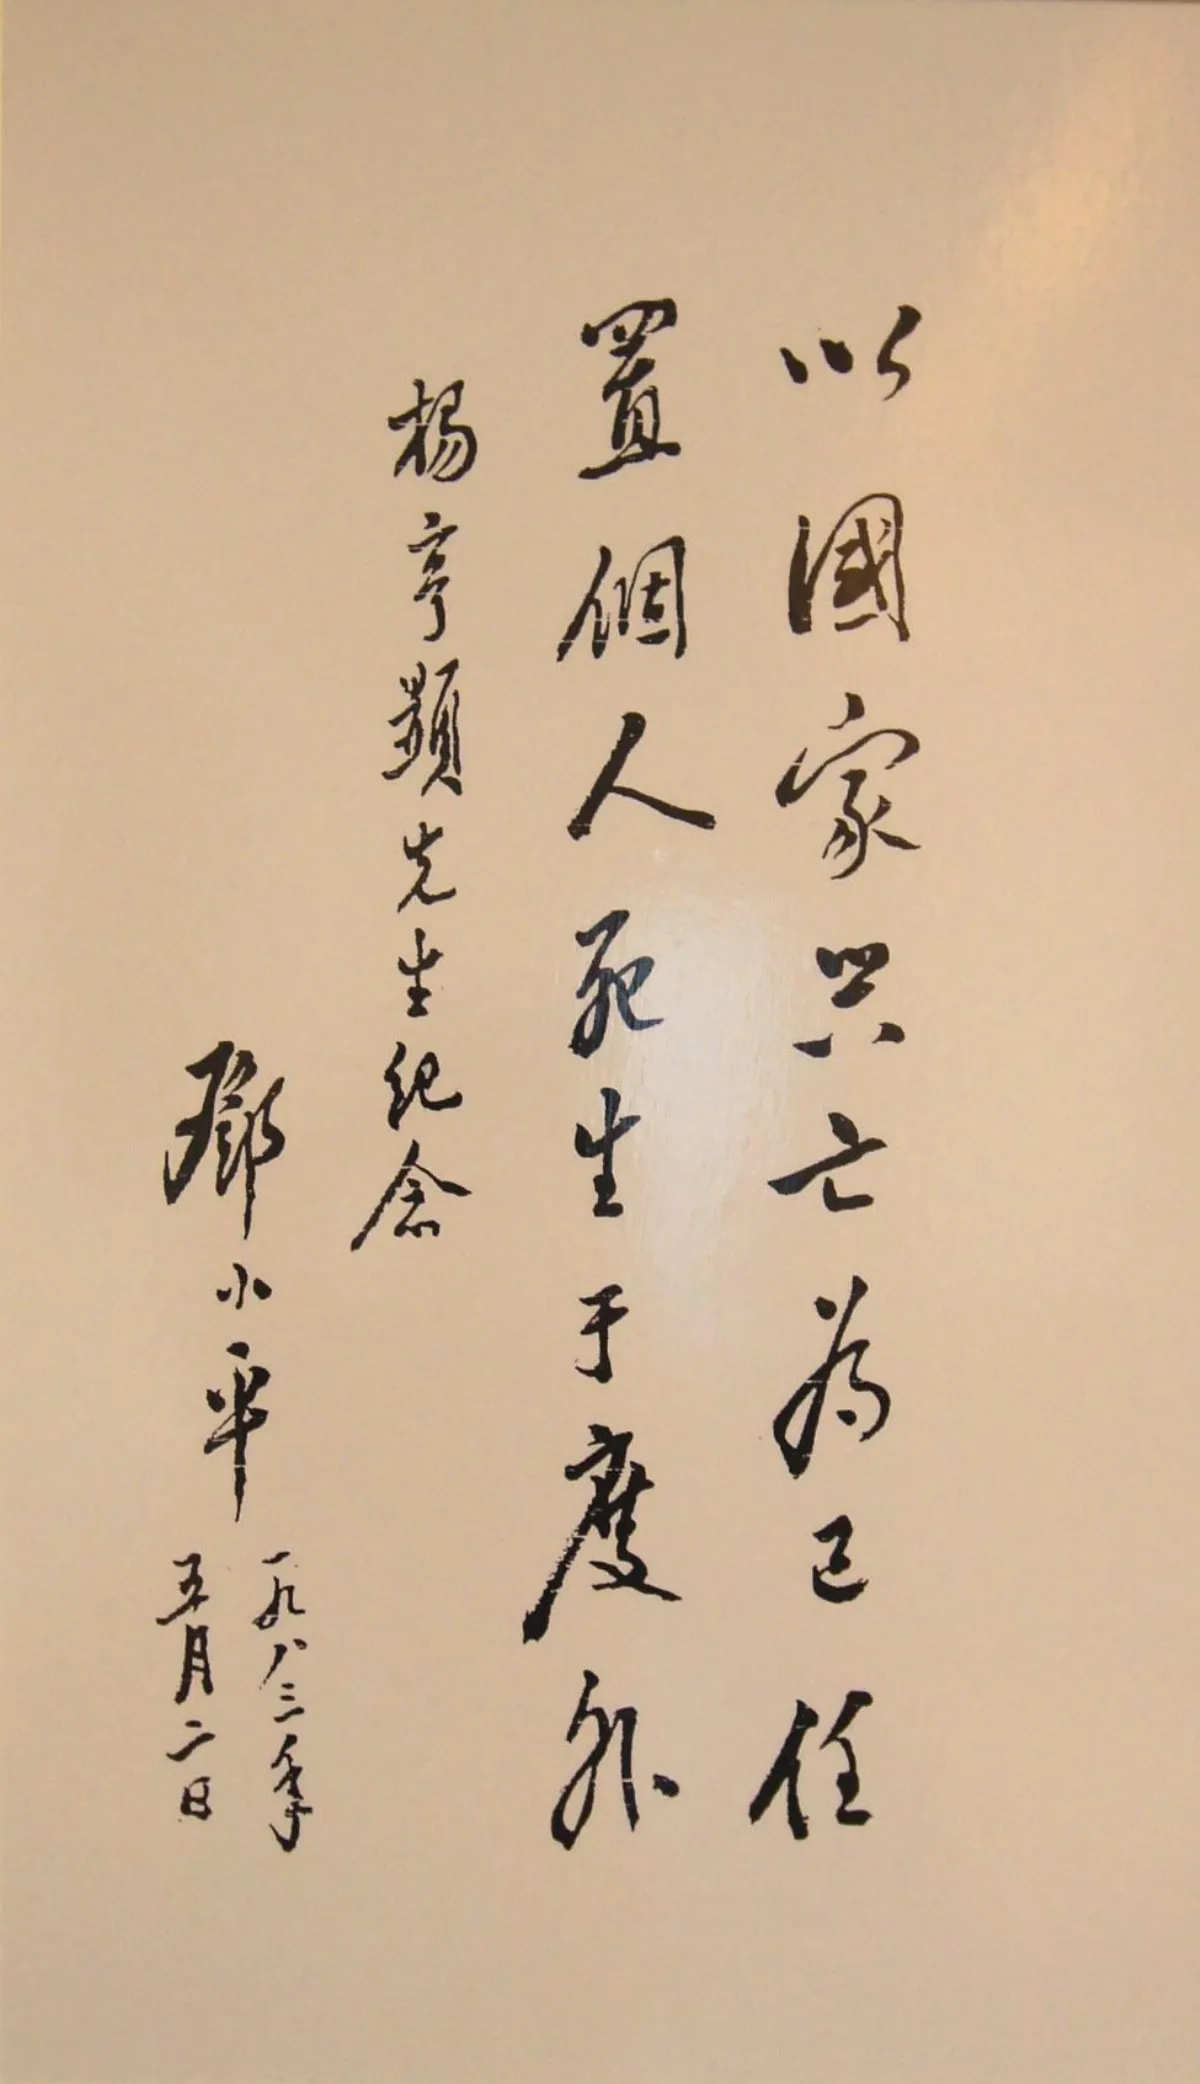 以國家兴亡為己任
置個人死生于度外
楊亨顯先生紀念
鄧小平
一九八三年
五月二日